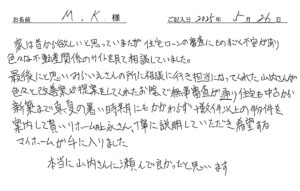 お名前 M.K 様 ご記入日 2025年5月26日
家は昔から欲しいと思っていましたが住宅ローンの審査にものすごく不安が有り
色々な不動産関係のサイトを見て相談していました。
最後にと思いみらいえさんの所に相談に行き担当になってくれた山内さんが
色々と改善策や提案をしてくれたお陰で無事審査が通り住宅も中古から
新築まで真夏の暑い時期にもかかわらず数十件以上の物件を
案内して貰いリホームも さん、丁寧に説明していただき希望する
マイホームが手に入りました
本当に山内さんに頼んで良かったと思います